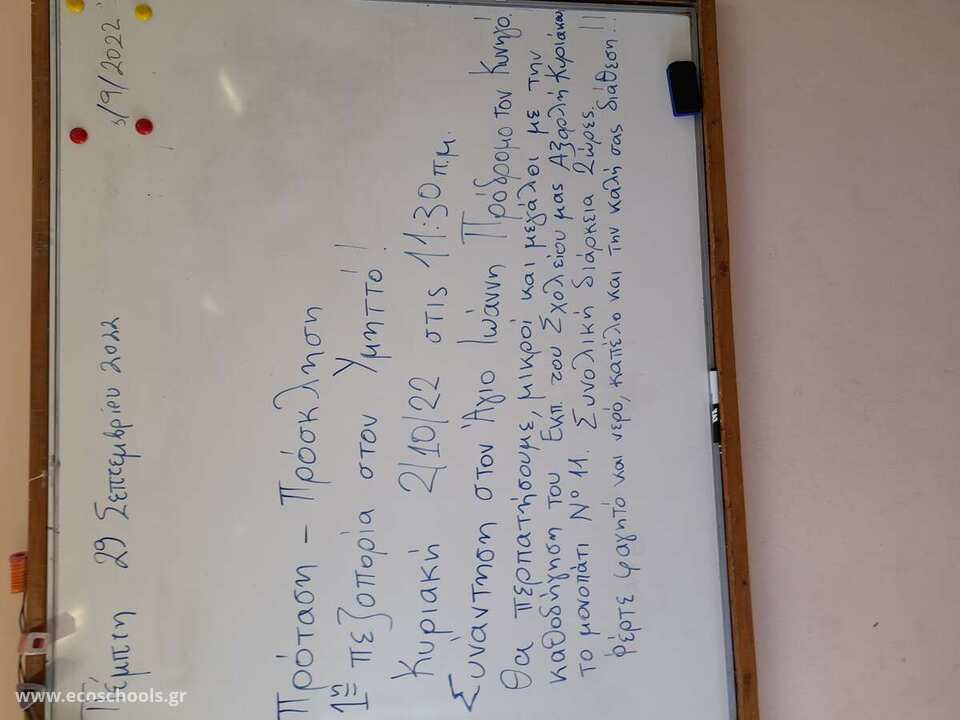 Πέμπτη 29 Σεπτεμβρίου 2022
5/9/2022
Πρόταση - Πρόσκληση
1η πεζοπορία στον Υμηττό!
Κυριακή 2/10/22 στις 11:30 π.μ.
Συνάντηση στον Άγιο Ιωάννη Πρόδρομο τον Κυνηγό.
Θα περπατήσουμε, μικροί και μεγάλοι με την
καθοδήγηση του Εκπ. του Σχολείου μας Αξαρλή Κυριάκου
το μονοπάτι Νο 11. Συνολική διάρκεια 2ώρες.
Φέρτε φαγητό και νερό, καπέλο και την καλή σας διάθεση!!
www.ecoschools.gr